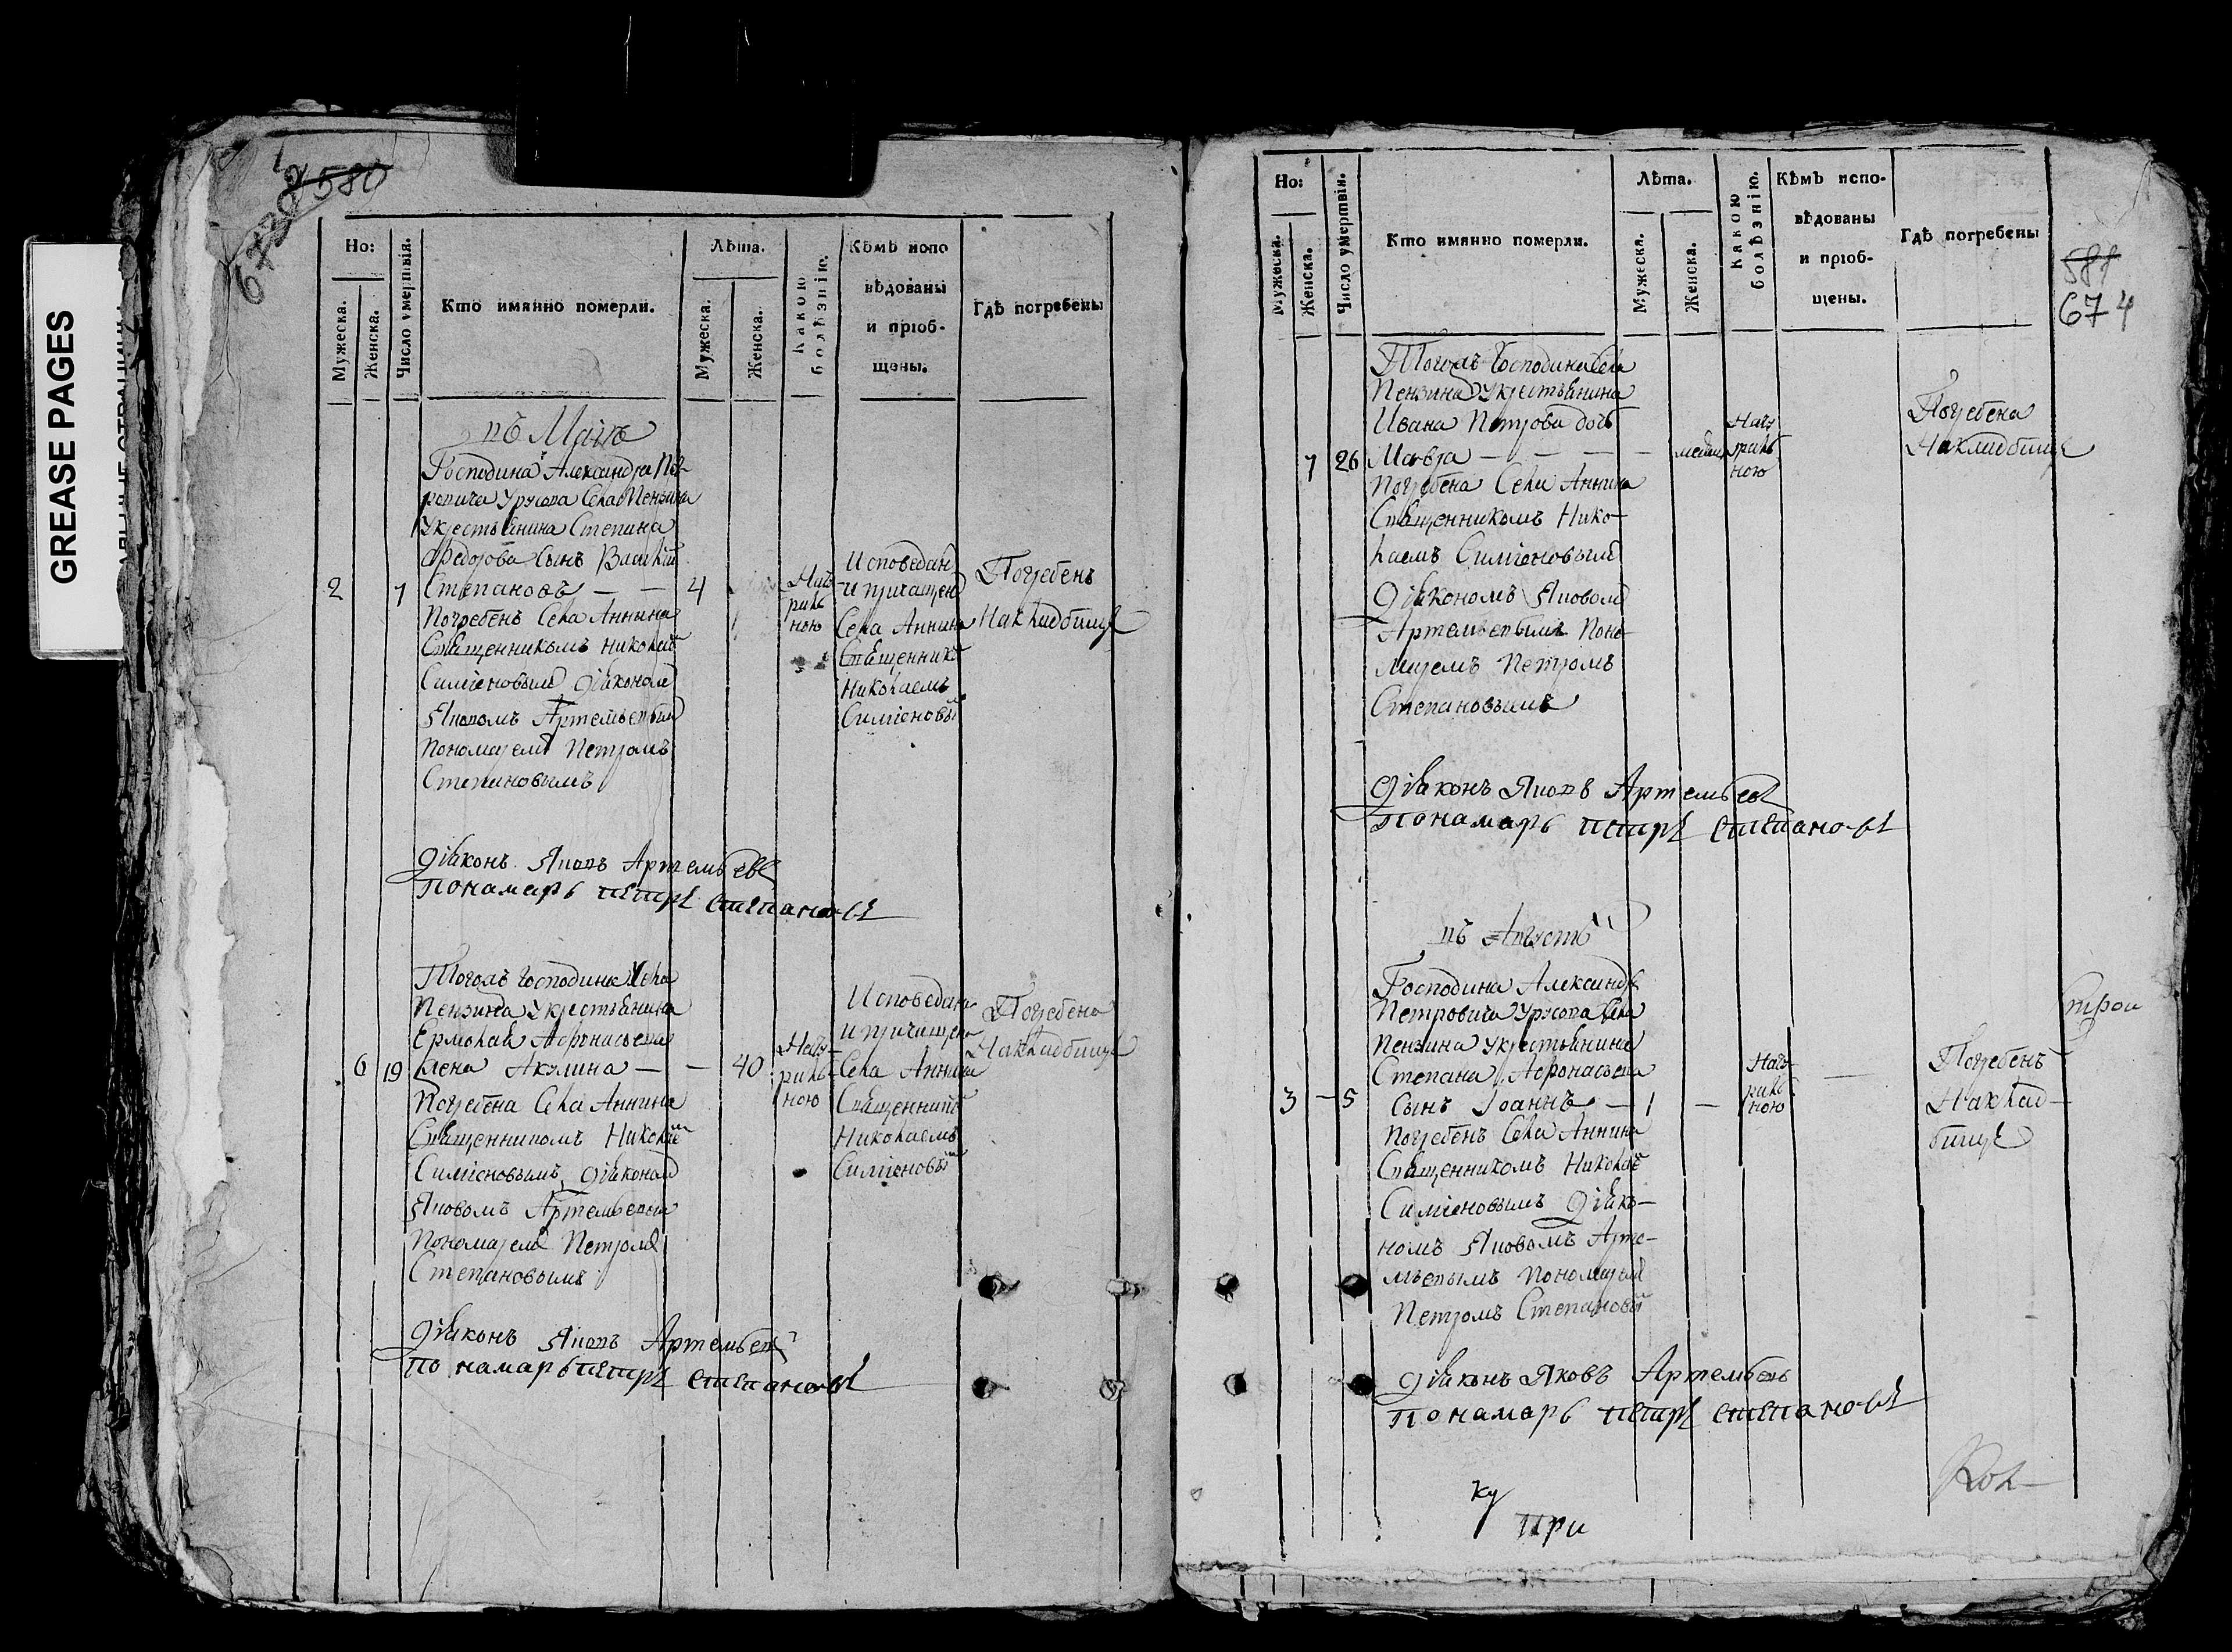 GREASE PAGES
580
Но:
Мужеска.
Женска.
Число умертвія.
Кто имянно померли.
Лѣта.
Мужеска.
Женска.
Какою болѣзнію.
Кѣмѣ испо
вѣдованы
и приоб-
щены.
Гдѣ погребены
Господина Александра Пет-
ровича Урусова Села Пензина
Укрестьянина Степана
Федорова Сынъ Василій
2 7 Степановъ — — 4
Погребенъ Села Аннина
Священникомъ Николаем
Симіоновымъ діакономъ
Яковомъ Артемьевымъ
Пономаремъ Петромъ
Степановымъ
Нату-
раль
ною
Исповедан
и причащен
Села Аннина
Священником
Николаемъ
Симіоновым
Погребенъ
Накладбище
Діаконъ Яковъ Артемьевъ
Понамарь Петръ Степановъ
Тогожъ Господина Села
Пензина Укрестьянина
Ермолая Афонасьева
6 19 жена Акулина — — 40
Погребена Села Аннина
Священникомъ Николаем
Симіоновымъ діакономъ
Яковомъ Артемьевым
Пономаремъ Петромъ
Степановымъ
Нату-
раль-
ною
Исповедана
и причащена
Села Аннина
Священником
Николаемъ
Симіоновым
Погребена
Накладбище
Діаконъ Яковъ Артемьевъ
Понамарь Петръ Степановъ
Но:
Мужеска.
Женска.
Число умертвія.
Кто имянно померли.
Лѣта.
Мужеска.
Женска.
Какою болѣзнію.
Кѣмѣ испо-
вѣдованы
и приоб-
щены.
Гдѣ погребены
674
Тогожъ Господина Села
Пензина Укрестьянина
Ивана Петрова дочь
7 26 Мавра — — — —
Погребена Села Аннина
Священникомъ Нико-
лаемъ Симіоновымъ
Діакономъ Яковомъ
Артемьевымъ Поно-
маремъ Петромъ
Степановымъ
Нату
раль
ною
Погребена
Накладбище
Діаконъ Яковъ Артемьевъ
Понамарь Петръ Степановъ
въ Августѣ
Господина Александра
Петровича Урусова Села
Пензина Укрестьянина
Степана Афонасьева
3 — 5 Сынъ Іоаннъ — 1 —
Погребенъ Села Аннина
Священникомъ Николаем
Симіоновымъ Діако-
номъ Яковомъ Арте-
мьевымъ Пономарем
Петромъ Степановым
Нату-
раль
ною
Погребенъ
Наклад-
бище
Діаконъ Яковъ Артемьевъ
Понамарь Петръ Степановъ
при